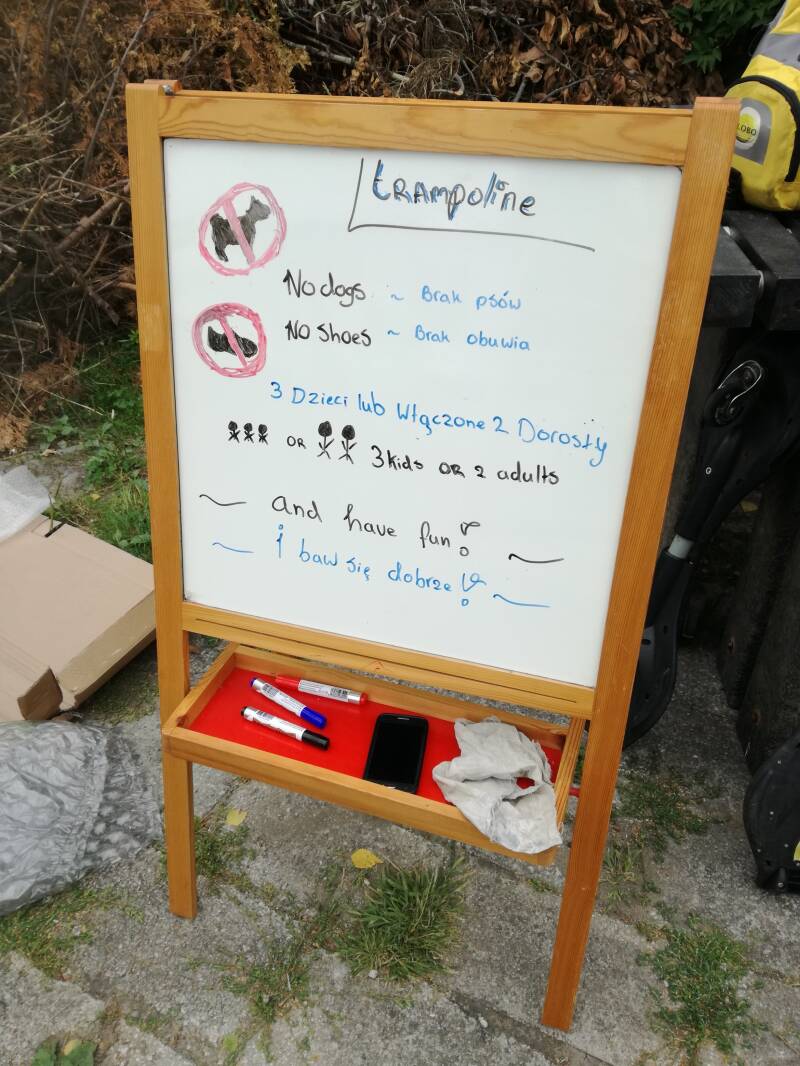 tRAmpoline
No dogs ~ Brak psów
No Shoes ~ Brak obuwia
3 Dzieci lub Włączone 2 Dorosły
OR 3 kids OR 2 adults
~ and have fun! ~
~ i baw się dobrze! ~
LOBO